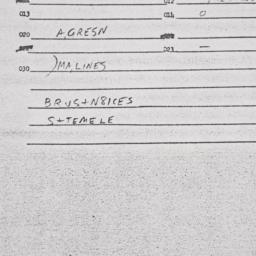 013 014 0
020 A,GRESN
023 —
030 )MALINES
BRUS+N81CES
S+TEMELE